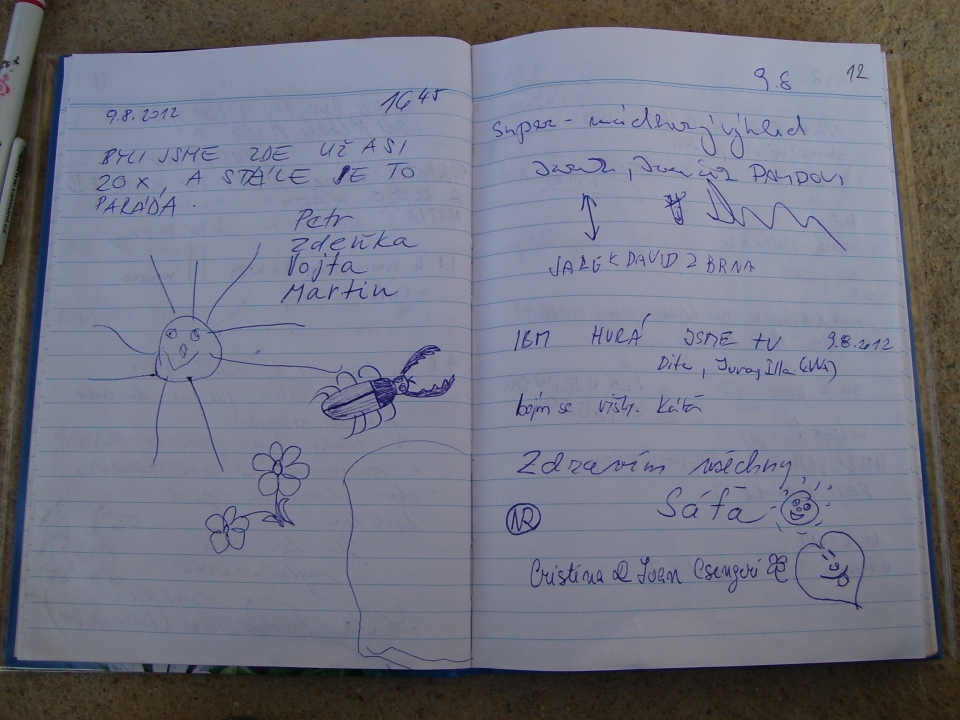 9.8.2012 16 45
BYLI JSME ZDE UŽ ASI
20 X, A STÁLE JE TO
PARÁDA.
Petr
Zdeňka
Vojta
Martin
9.8 12
Super - nádherný výhled
JAREK DAVID Z BRNA
HURÁ JSME TU 9.8.2012
Dita, Juraj,
bojím se výšk. Káťa
Zdravím všechny
Sáťa
NR
Cristina & Ivan Csengeri